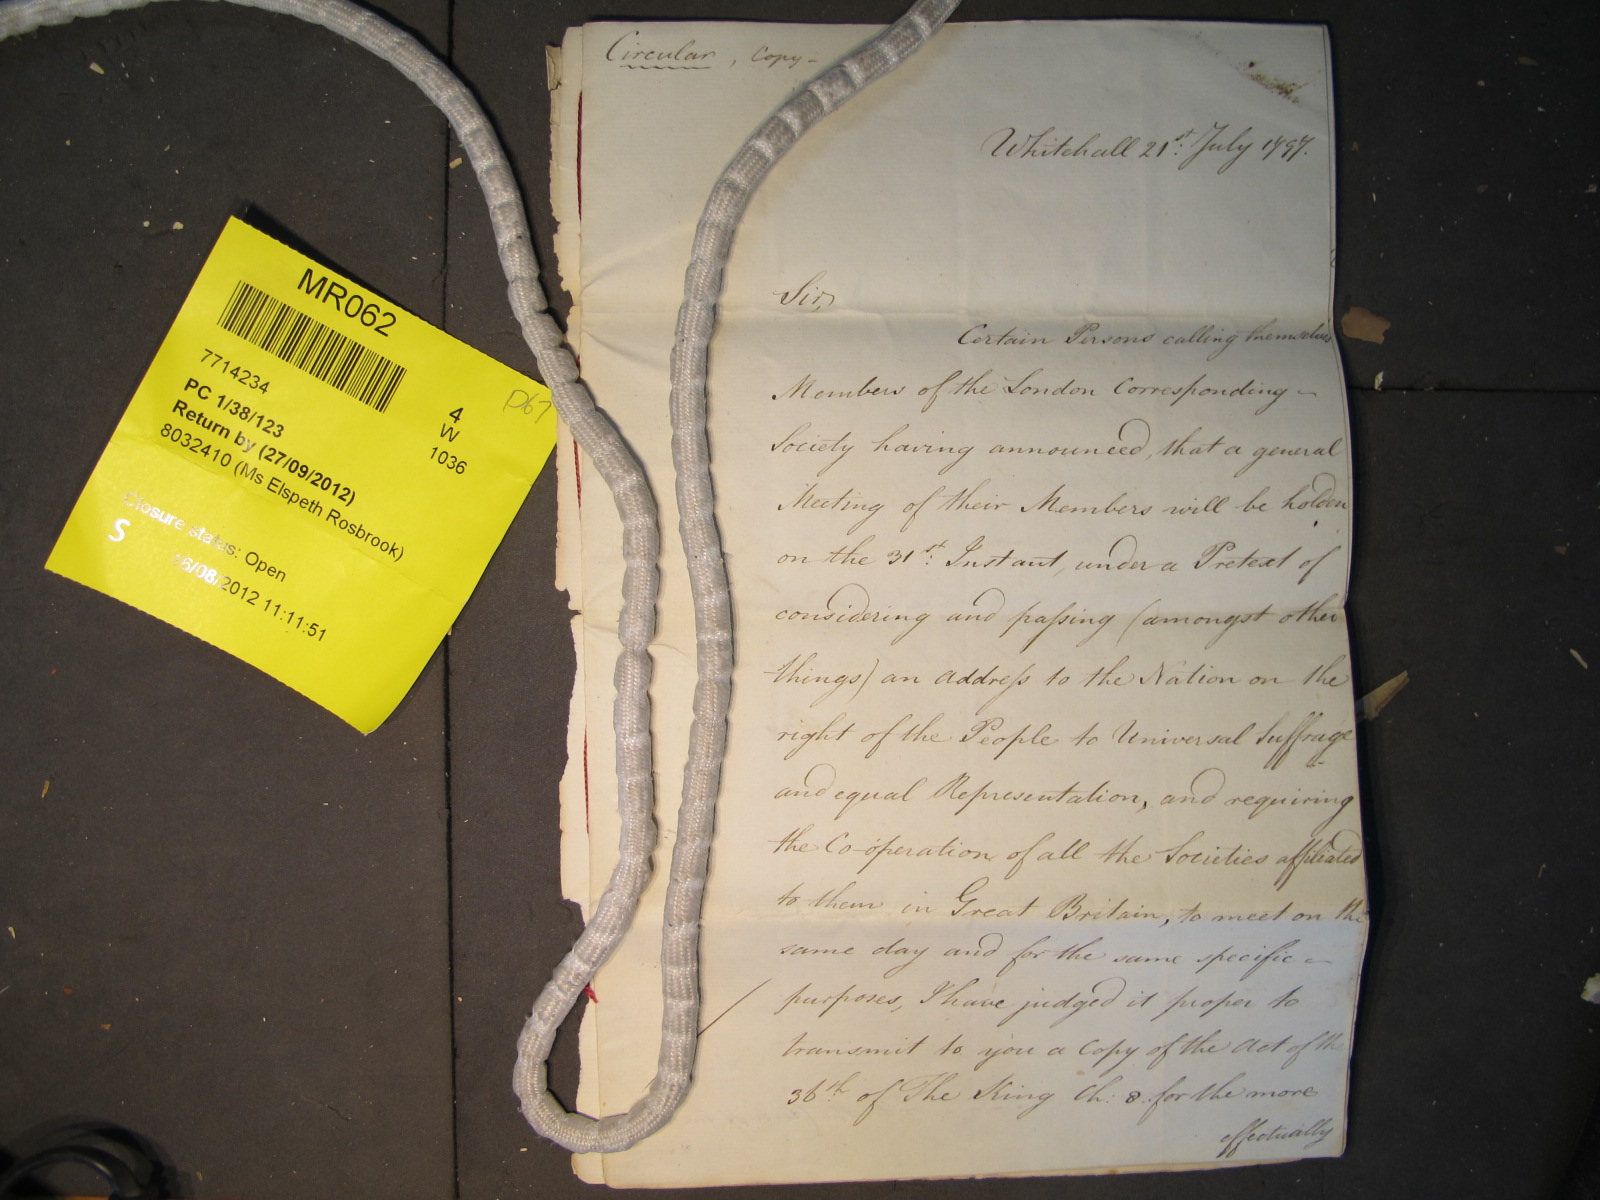 MR062
7714234
PC 1/38/123
Return by (27/09/2012)
8032410 (Ms Elspeth Rosbrook)
Closure status: Open
S
16/08/2012 11:11:51
4
W
1036
D67
Circular, Copy -
Whitehall 21st. July 1797.
Sir,
Certain Persons calling themselves
Members of the London Corresponding -
Society having announced, that a general
Meeting of their Members will be holden
on the 31st. Instant, under a Pretext of
considering and paſsing (amongst other
things) an addreſs to the Nation on the
right of the People to Universal Suffrage
and equal Representation, and requiring
the Co-operation of all the Societies affiliated
to them in Great Britain, to meet on the
same day and for the same specific -
purposes, I have judged it proper to
transmit to you a Copy of the Act of the
36th of The King Ch: 8. for the more
effectually